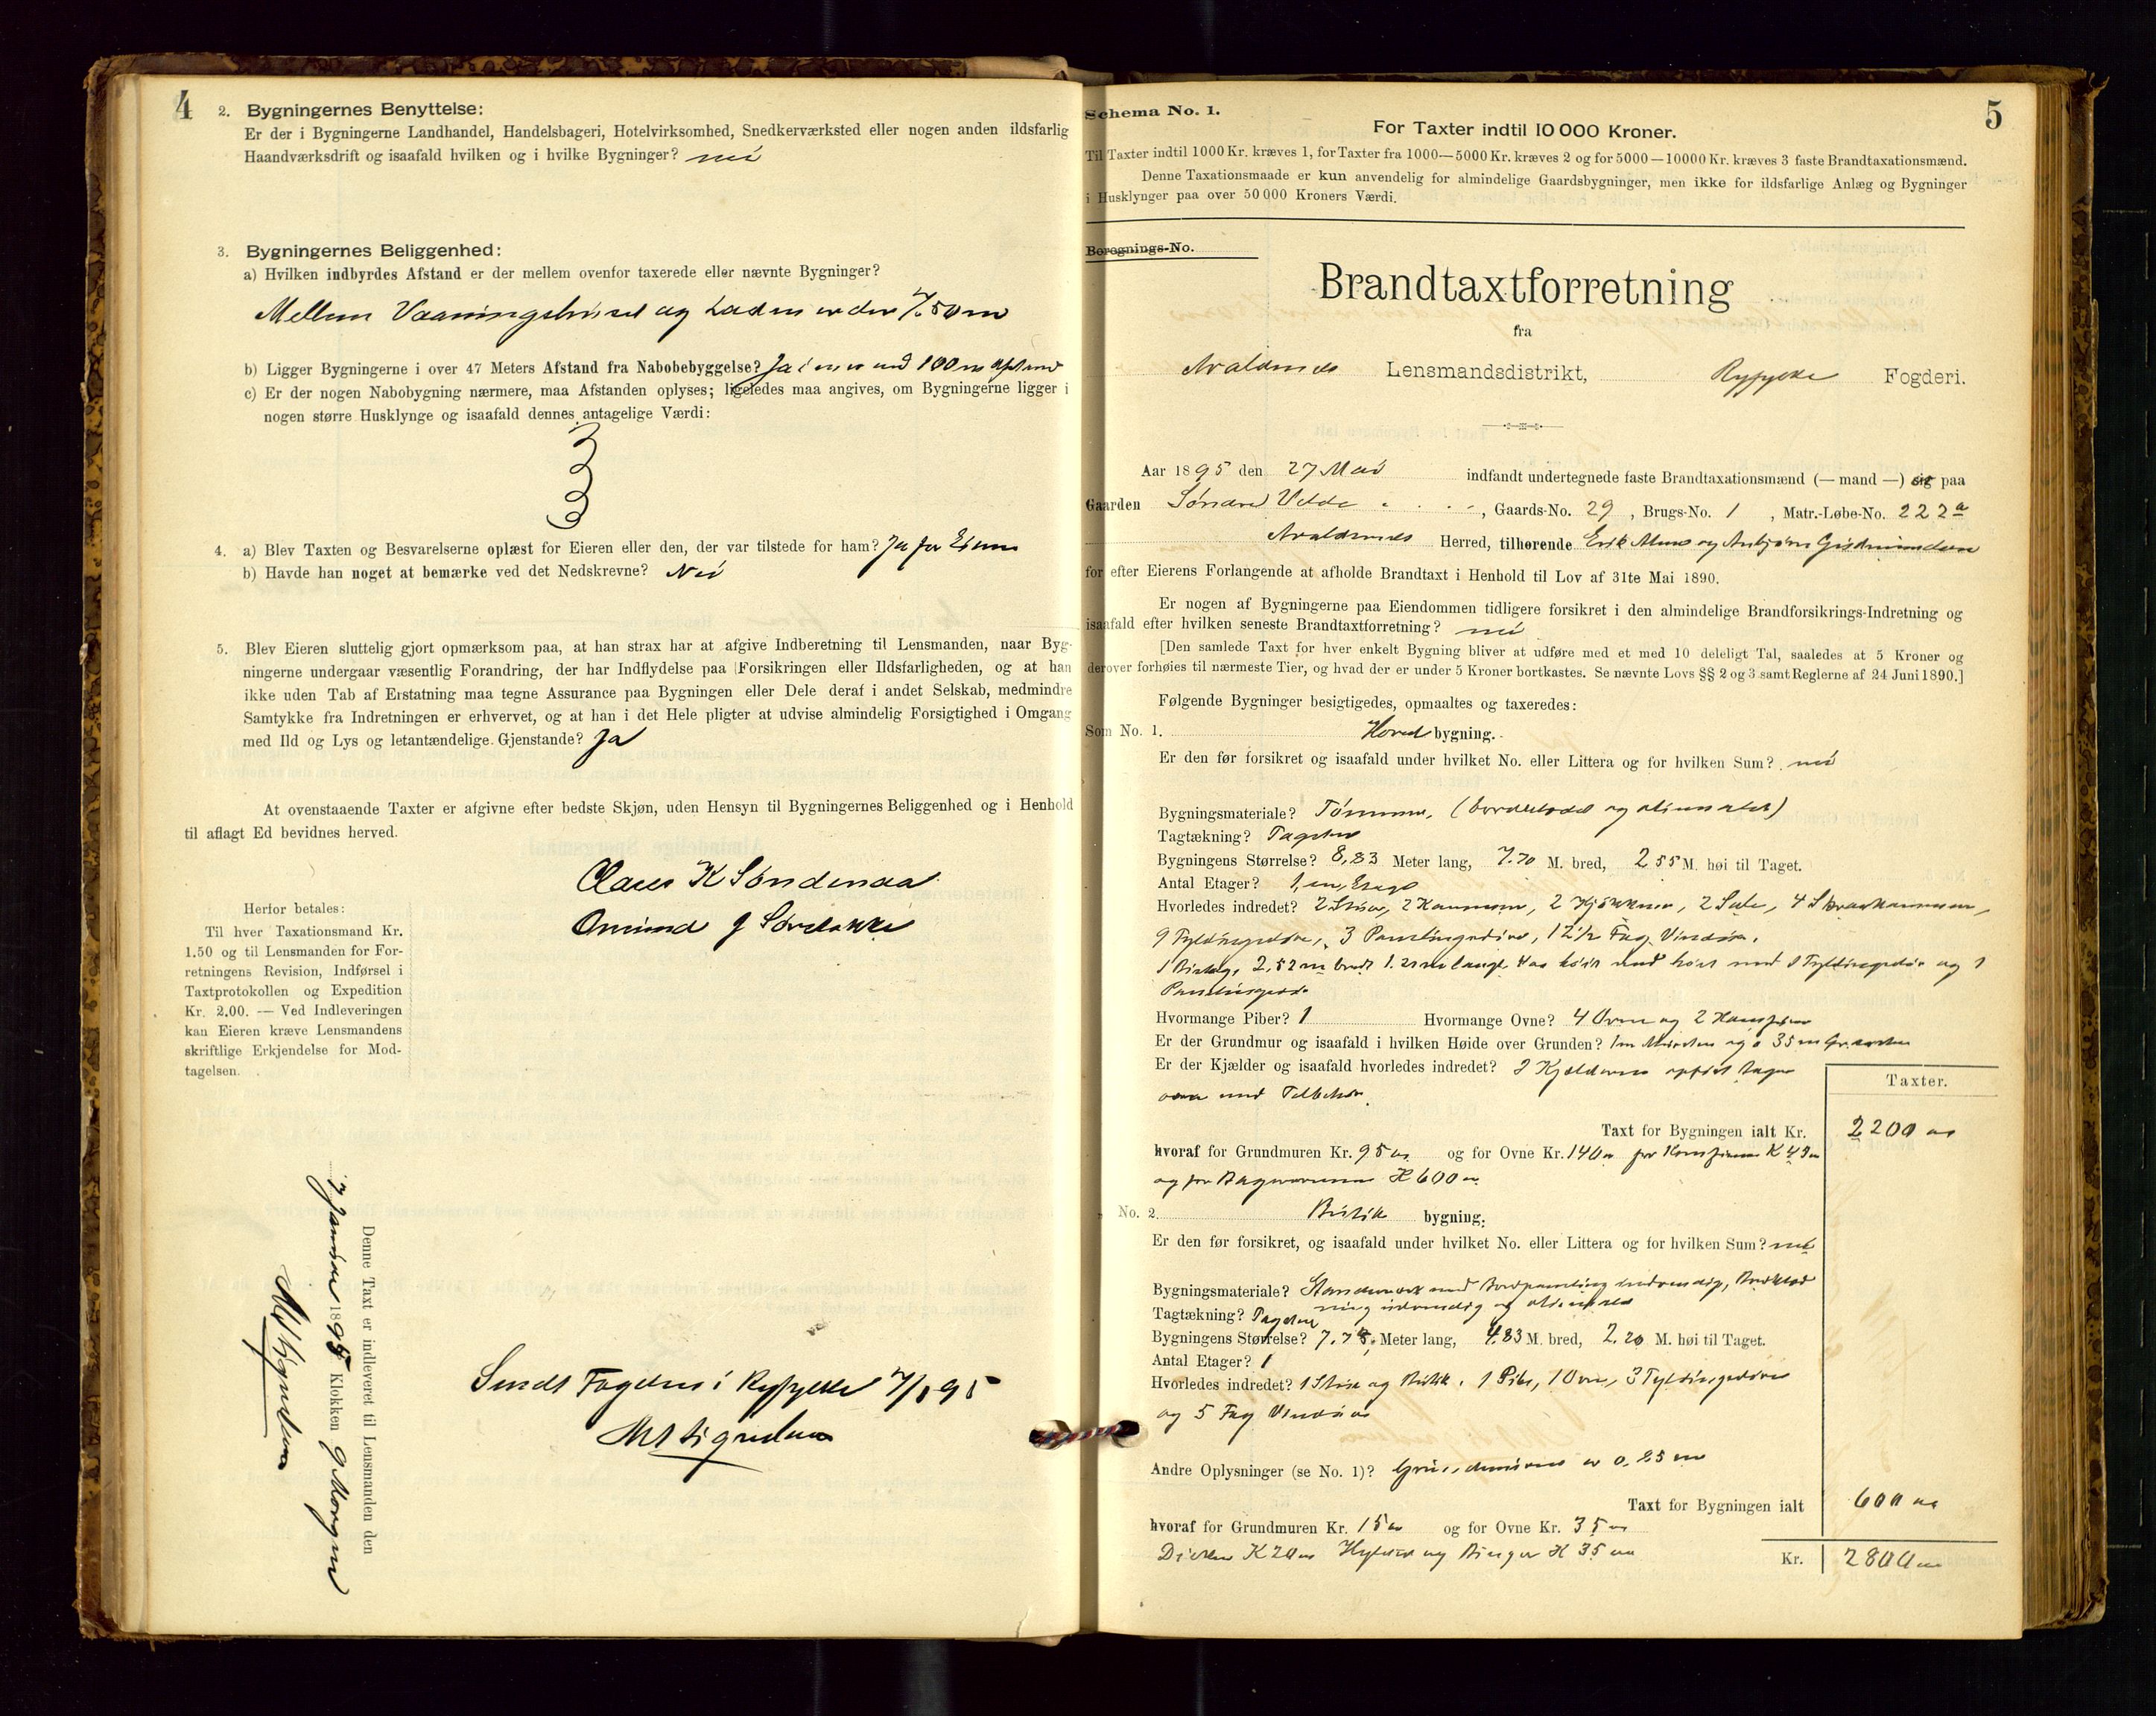 4
2. Bygningernes Benyttelse:
Er der i Bygningerne Landhandel, Handelsbageri, Hotelvirksomhed, Snedkerværksted eller nogen anden ildsfarlig
Haandværksdrift og isaafald hvilken og i hvilke Bygninger? nei
3. Bygningernes Beliggenhed:
a) Hvilken indbyrdes Afstand er der mellem ovenfor taxerede eller nævnte Bygninger?
Mellem Vaaningshuset og Laden er der 7.50 m
b) Ligger Bygningerne i over 47 Meters Afstand fra Nabobebyggelse? Ja 100 m Afstand
c) Er der nogen Nabobygning nærmere, maa Afstanden oplyses; ligeledes maa angives, om Bygningerne ligger i
nogen større Husklynge og isaafald dennes antagelige Værdi:
4. a) Blev Taxten og Besvarelserne oplæst for Eieren eller den, der var tilstede for ham? Ja for Eieren
b) Havde han noget at bemærke ved det Nedskrevne? Nei
5. Blev Eieren sluttelig gjort opmærksom paa, at han strax har at afgive Indberetning til Lensmanden, naar Byg-
ningerne undergaar væsentlig Forandring, der har Indflydelse paa Forsikringen eller Ildsfarligheden, og at han
ikke uden Tab af Erstatning maa tegne Assurance paa Bygningen eller Dele deraf i andet Selskab, medmindre
Samtykke fra Indretningen er erhvervet, og at han i det Hele pligter at udvise almindelig Forsigtighed i Omgang
med Ild og Lys og letantændelige Gjenstande? Ja
At ovenstaaende Taxter er afgivne efter bedste Skjøn, uden Hensyn til Bygningernes Beliggenhed og i Henhold
til aflagt Ed bevidnes herved.
Claus K Søndenaa
Herfor betales:
Til hver Taxationsmand Kr.
1.50 og til Lensmanden for For-
retningens Revision, Indførsel i
Taxtprotokollen og Expedition
Kr. 2.00. — Ved Indleveringen
kan Eieren kræve Lensmandens
skriftlige Erkjendelse for Mod-
tagelsen.
Denne Taxt er indleveret til Lensmanden den
7 Januar 1895 Klokken 9 Morgen
Sendt Fogden i Ryfylke 7/1 95
Schema No. 1.
5
For Taxter indtil 10 000 Kroner.
Til Taxter indtil 1000 Kr. kræves 1, for Taxter fra 1000—5000 Kr. kræves 2 og for 5000—10000 Kr. kræves 3 faste Brandtaxationsmænd.
Denne Taxationsmaade er kun anvendelig for almindelige Gaardsbygninger, men ikke for ildsfarlige Anlæg og Bygninger
i Husklynger paa over 50 000 Kroners Værdi.
Beregnings-No.
Brandtaxtforretning
fra
Avaldsnes Lensmandsdistrikt, Ryfylke Fogderi.
Aar 1895 den 27 Mai indfandt undertegnede faste Brandtaxationsmænd (— mand —) sig paa
Gaarden Søndre Velde, Gaards-No. 29, Brugs-No. 1, Matr.-Løbe-No. 222a
Avaldsnes Herred, tilhørende Erik og
for efter Eierens Forlangende at afholde Brandtaxt i Henhold til Lov af 31te Mai 1890.
Er nogen af Bygningerne paa Eiendommen tidligere forsikret i den almindelige Brandforsikrings-Indretning og
isaafald efter hvilken seneste Brandtaxtforretning? nei
[Den samlede Taxt for hver enkelt Bygning bliver at udføre med et med 10 deleligt Tal, saaledes at 5 Kroner og
derover forhøies til nærmeste Tier, og hvad der er under 5 Kroner bortkastes. Se nævnte Lovs §§ 2 og 3 samt Reglerne af 24 Juni 1890.]
Følgende Bygninger besigtigedes, opmaaltes og taxeredes:
Som No. 1. Hovedbygning.
Er den før forsikret og isaafald under hvilket No. eller Littera og for hvilken Sum? nei
Bygningsmateriale? Tømmer, (bordklædt og oliemalet)
Tagtækning? Tagsten
Bygningens Størrelse? 8,83 Meter lang, 7.70 M. bred, 2 55 M. høi til Taget.
Antal Etager? 1, en, Etage
Hvorledes indredet? 2 Stuer, 2 Kammere, 2 Kjøkkener, 2 Sale, 4 Skraakammere,
9 Fyldingsdøre, 3 Panelingsdøre, 12 1/2 Fag Vinduer.
1 Bislag, 2,52 m bredt 1.25 m langt med 1 Fyldingsdør og 1
Panelingsdør
Hvormange Piber? 1 Hvormange Ovne? 4 Ovne og 2 Komfurer
Er der Grundmur og isaafald i hvilken Høide over Grunden?
Er der Kjælder og isaafald hvorledes indredet? 2 Kjældere
med Tilbehør
Taxter.
Taxt for Bygningen ialt Kr. 2200 00
hvoraf for Grundmuren Kr. 95 00 og for Ovne Kr. 140 00 for Komfurene K
og for K 600 00
No. 2. Butik bygning.
Er den før forsikret, og isaafald under hvilket No. eller Littera og for hvilken Sum? nei
Bygningsmateriale? med Bordpaneling indvendig, Bordklæd
ning udvendig og oliemalet
Tagtækning? Tagsten
Bygningens Størrelse? 7.78 Meter lang, 4.83 M. bred, 2.20 M. høi til Taget.
Antal Etager? 1
Hvorledes indredet? 1 Stue og Butik, 1 Pibe, 1 Ovn, 3 Fyldingsdøre
og 5 Fag Vinduer
Andre Oplysninger (se No. 1)? Grundmuren er 0.25 m
Taxt for Bygningen ialt 600 00
hvoraf for Grundmuren Kr. 15 00 og for Ovne Kr. 35 00
Disken K 20 00 Hylder og Binger K 35 00 Kr. 2800 00